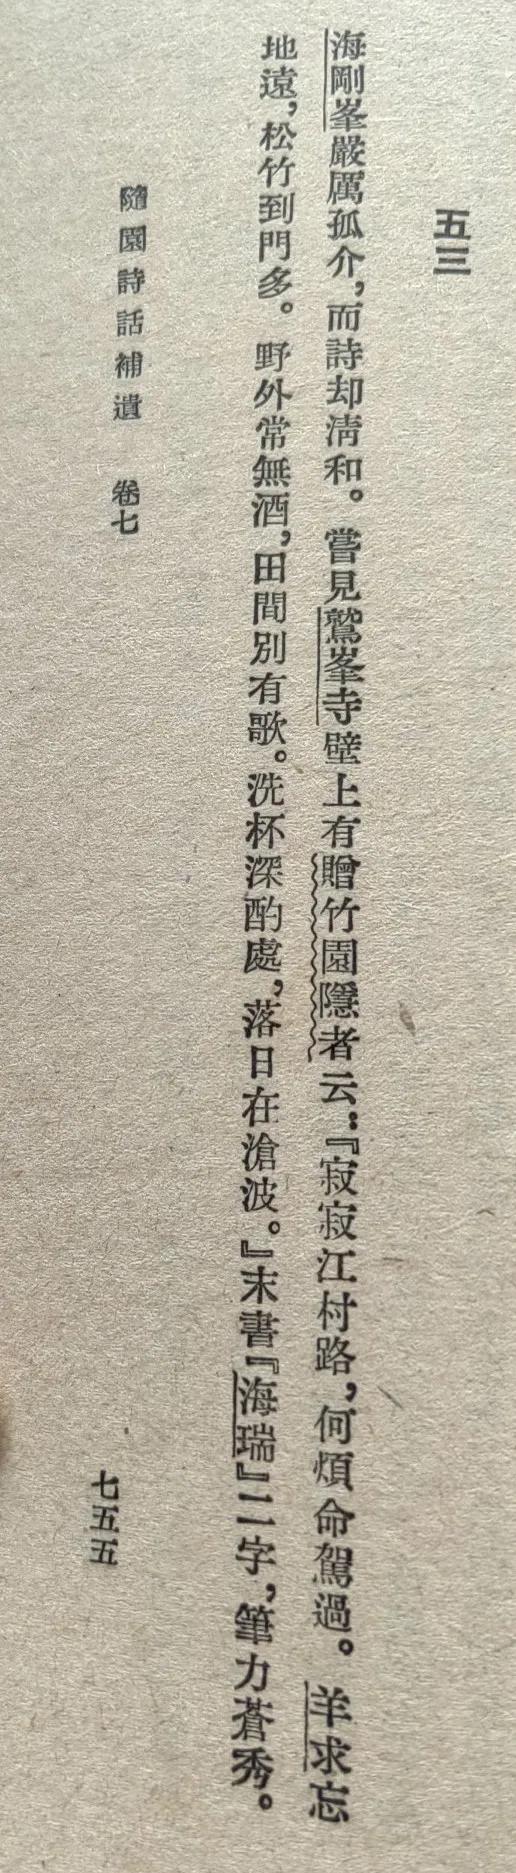 五三
海剛峯嚴厲孤介，而詩却淸和。嘗見鷲峯寺壁上有贈竹園隱者云：『寂寂江村路，何煩命駕過。羊求忘
地遠，松竹到門多。野外常無酒，田間別有歌。洗杯深酌處，落日在滄波。』末書『海瑞』二字，筆力蒼秀。
隨園詩話補遺　卷七
七五五